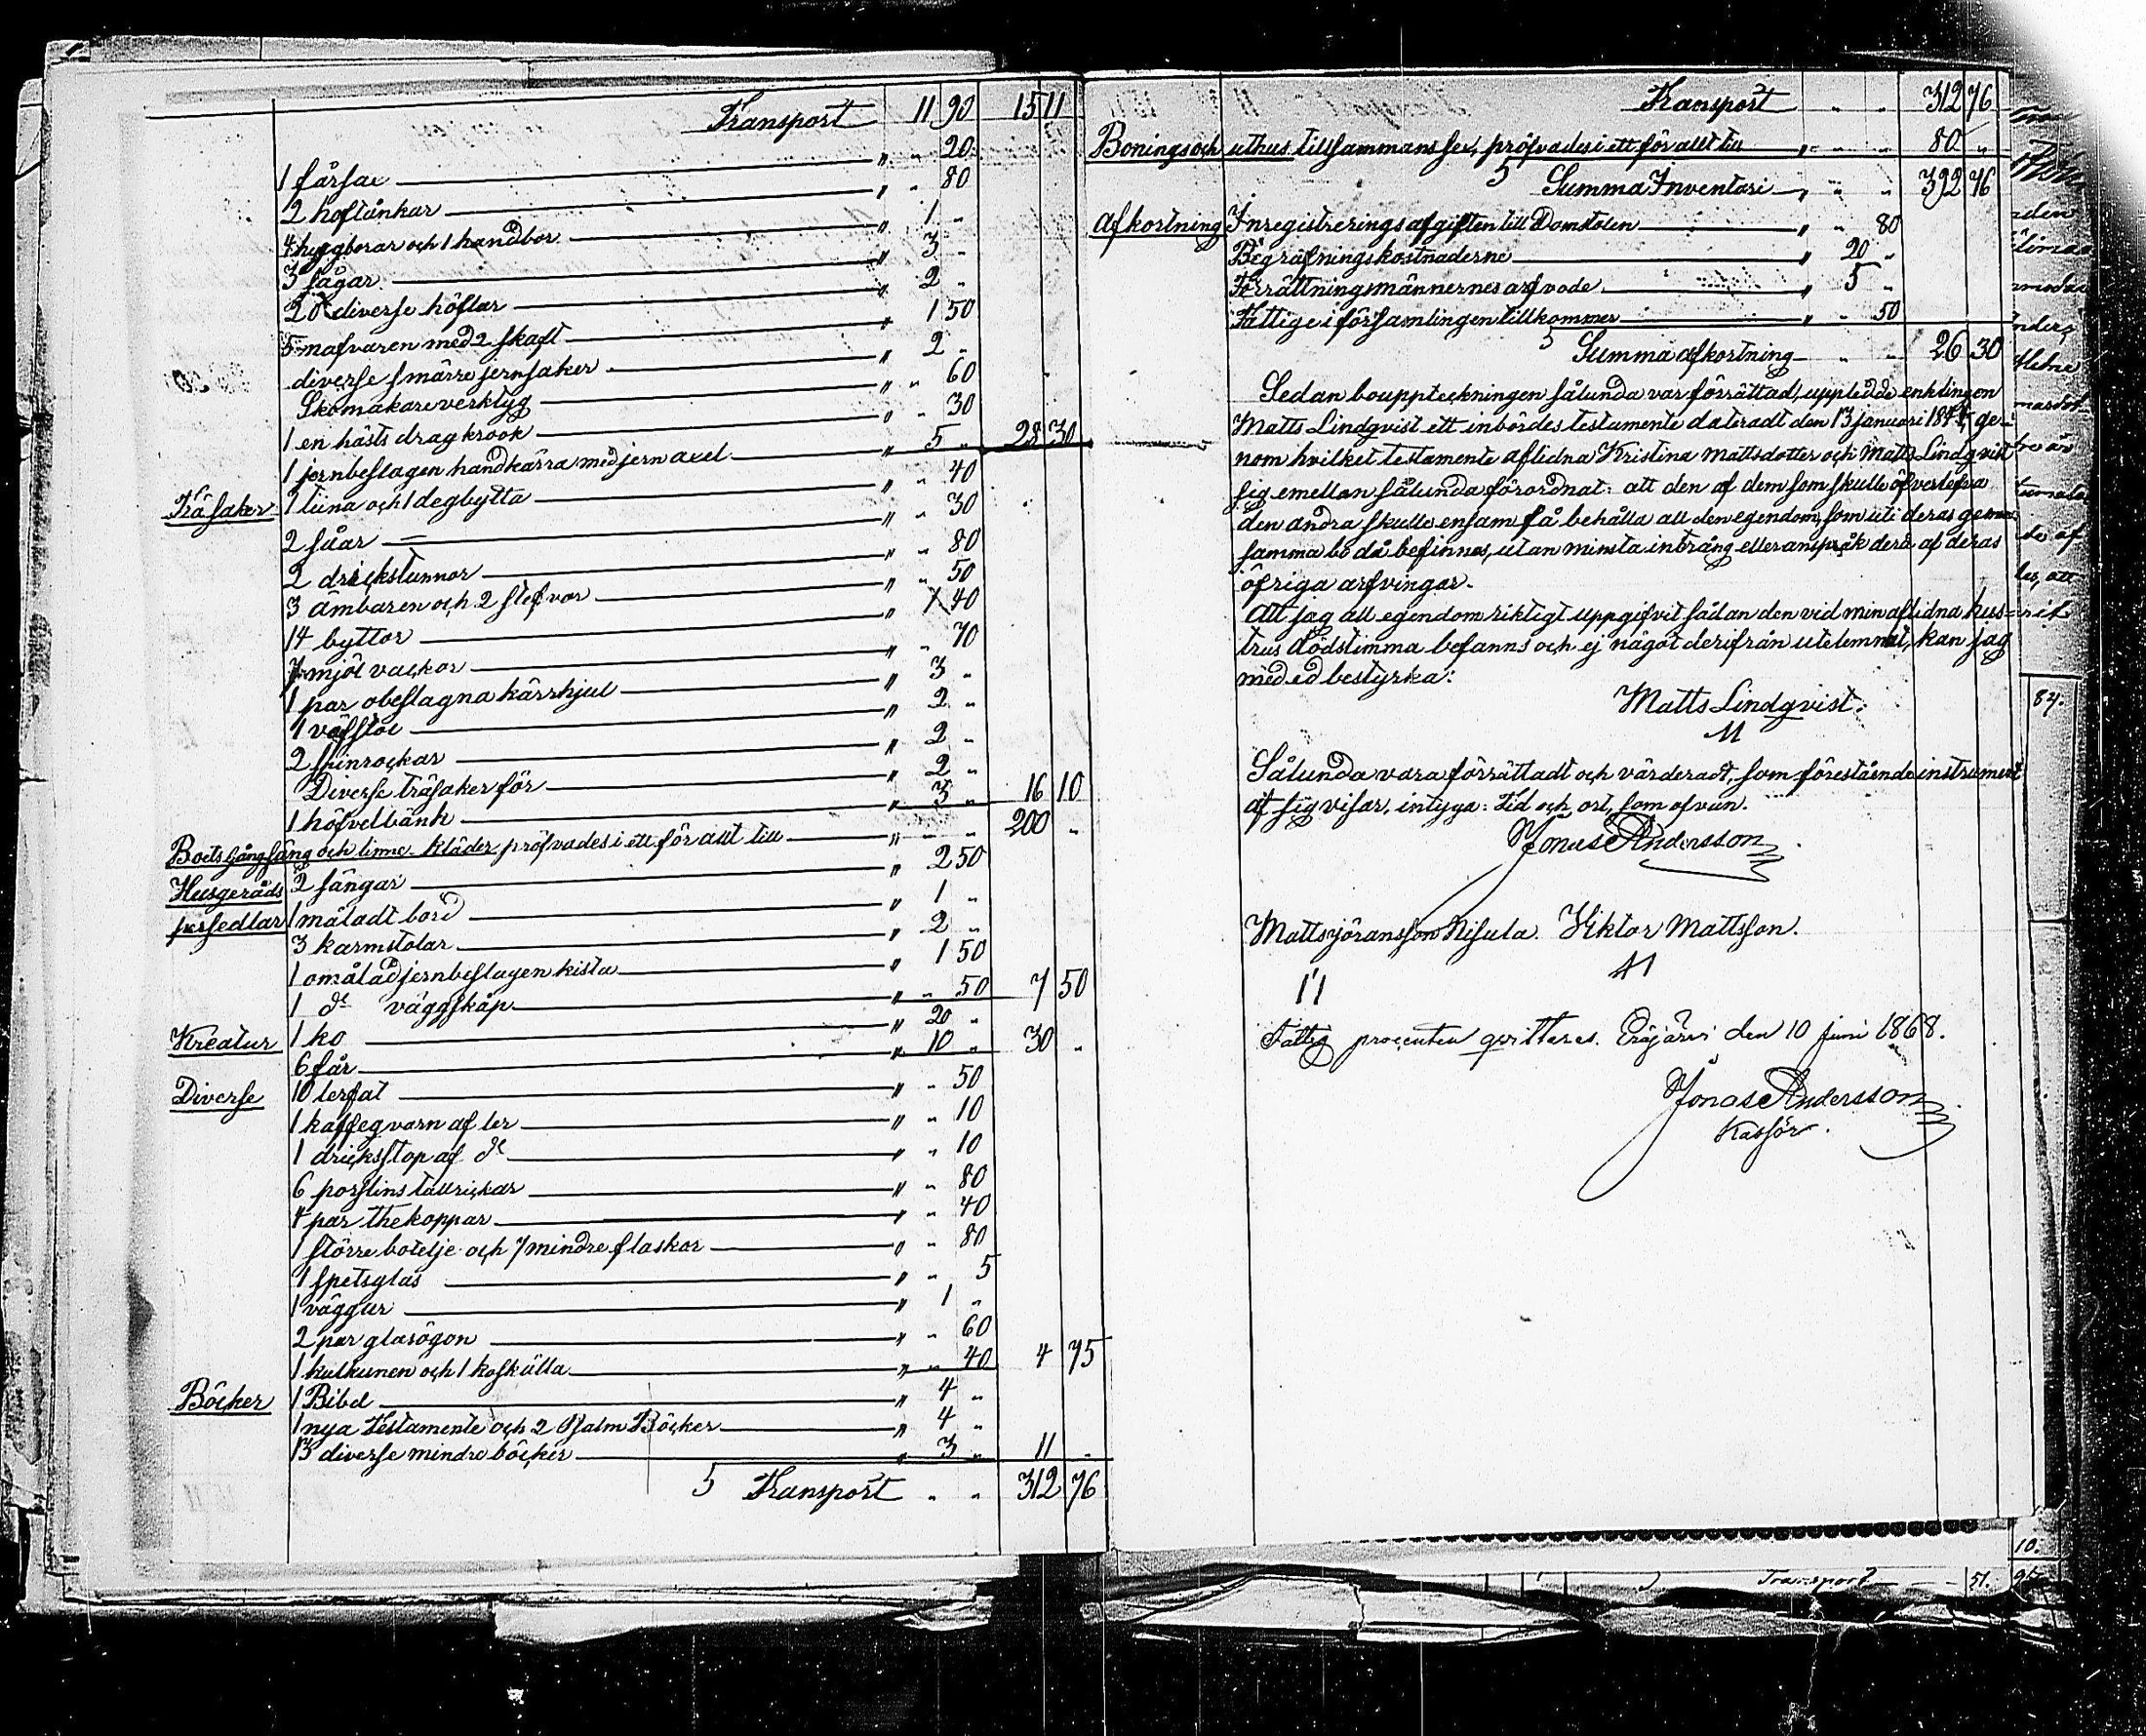 Transport 11 90 15 11
1 fårsax " " 20
2 hoftänkar " " 80
4 huggborar och 1 handbor " 1 "
3 sågar " 3 "
20 diverse höflar " 2 "
5 nafvaren med 2 skaft " 1 50
diverse smärre jernsaker " 2 "
Skomakareverktyg " " 60
1 en hästs dragkrook " " 30
1 jernbeslagen handkärra med jernaxel " 5 " 28 30
Träsaker 1 tiina och 1 degbytta " " 40
2 såar " " 30
2 drickstunnor " " 80
3 ämbaren och 2 stefvor " " 50
14 byttor " 1 40
7 mjölvackor " " 70
1 par obeslagna kärrhjul " 3 "
1 väfstol " 2 "
2 spinrockar " 2 "
Diverse träsaker för " 2 "
1 höfvelbänk " 3 " 16 10
Boets Gång säng och linne kläder pröfvades i ett för allt till " " " 200 "
Husgeråds 2 sängar " 2 50
persedlar 1 måladt bord " 1 "
3 karmstolar " 2 "
1 omålad jernbeslagen kista " 1 50
1 do väggskåp " " 50 7 50
Kreatur 1 ko " 20 "
6 får " 10 " 30 "
Diverse 10 lerfat " " 50
1 kaffeqvarn af ler " " 10
1 dricksstop af do " " 10
6 porslins tallrickar " " 80
4 par thekoppar " " 40
1 större botelje och 7 mindre flaskor " " 80
1 spetsglas " " 5
1 väggur " 1 "
2 par glasögon " " 60
1 kulkunen och 1 koskälla " " 40 4 75
Böcker 1 Bibel " 4 "
1 nya Testamente och 2 Psalm Böcker " 4 "
13 diverse mindre böcker " 3 " 11 "
Transport " " 312 76
Transport " " 312 76
Bonings och uthus tillsammans sex, pröfvades i ett för allt till " " " 80 "
Summa Inventari " " " 392 76
Afkortning Inregistreringsafgiften till Domstolen " " 80
Begrafningskostnaderne " 20 "
Förrättningsmännernes arfvode " 5 "
Fattige i församlingen tillkommer " " 50
Summa afkortning " " 26 30
Sedan bouppteckningen sålunda var förrättad, upplädde enklingen
Matts Lindqvist ett inbördes testamente dateradt den 13 januari 184, ge-
nom hvilket testamente aflidna Kristina Mattsdotter och Matts Lindqvist
sig emellan sålunda förordnat: att den af dem som skulle öfverlefva
den andra skulle ensam få behålla all den egendom, som uti deras gemen
samma bo då befinnes, utan minsta intrång eller anspråk derå af deras
öfriga arfvingar.
Att jag all egendom riktigt uppgifvit sådan den vid min aflidna hus=
trus dödstimma befanns och ej något derifrån utelemnat, kan jag
med ed bestyrka:
Matts Lindqvist.
M
Sålunda vara förrättadt och värderadt, som förestående instrument
af sig visar, intyga: tid och ort, som ofvan.
Jonas Andersson
Matts Jöransson Nisula. Viktor Mattsson.
M
Fattig procenten qvitteras. Eräjärvi den 10 juni 1868.
Jonas Andersson
Kassör.
84.
10.
Transport 51.